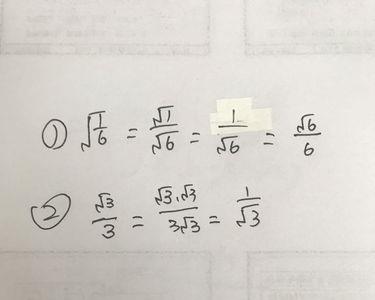 ① √1/6 = √1/√6 = 1/√6 = √6/6
② √3/3 = √3·√3/3√3 = 1/√3